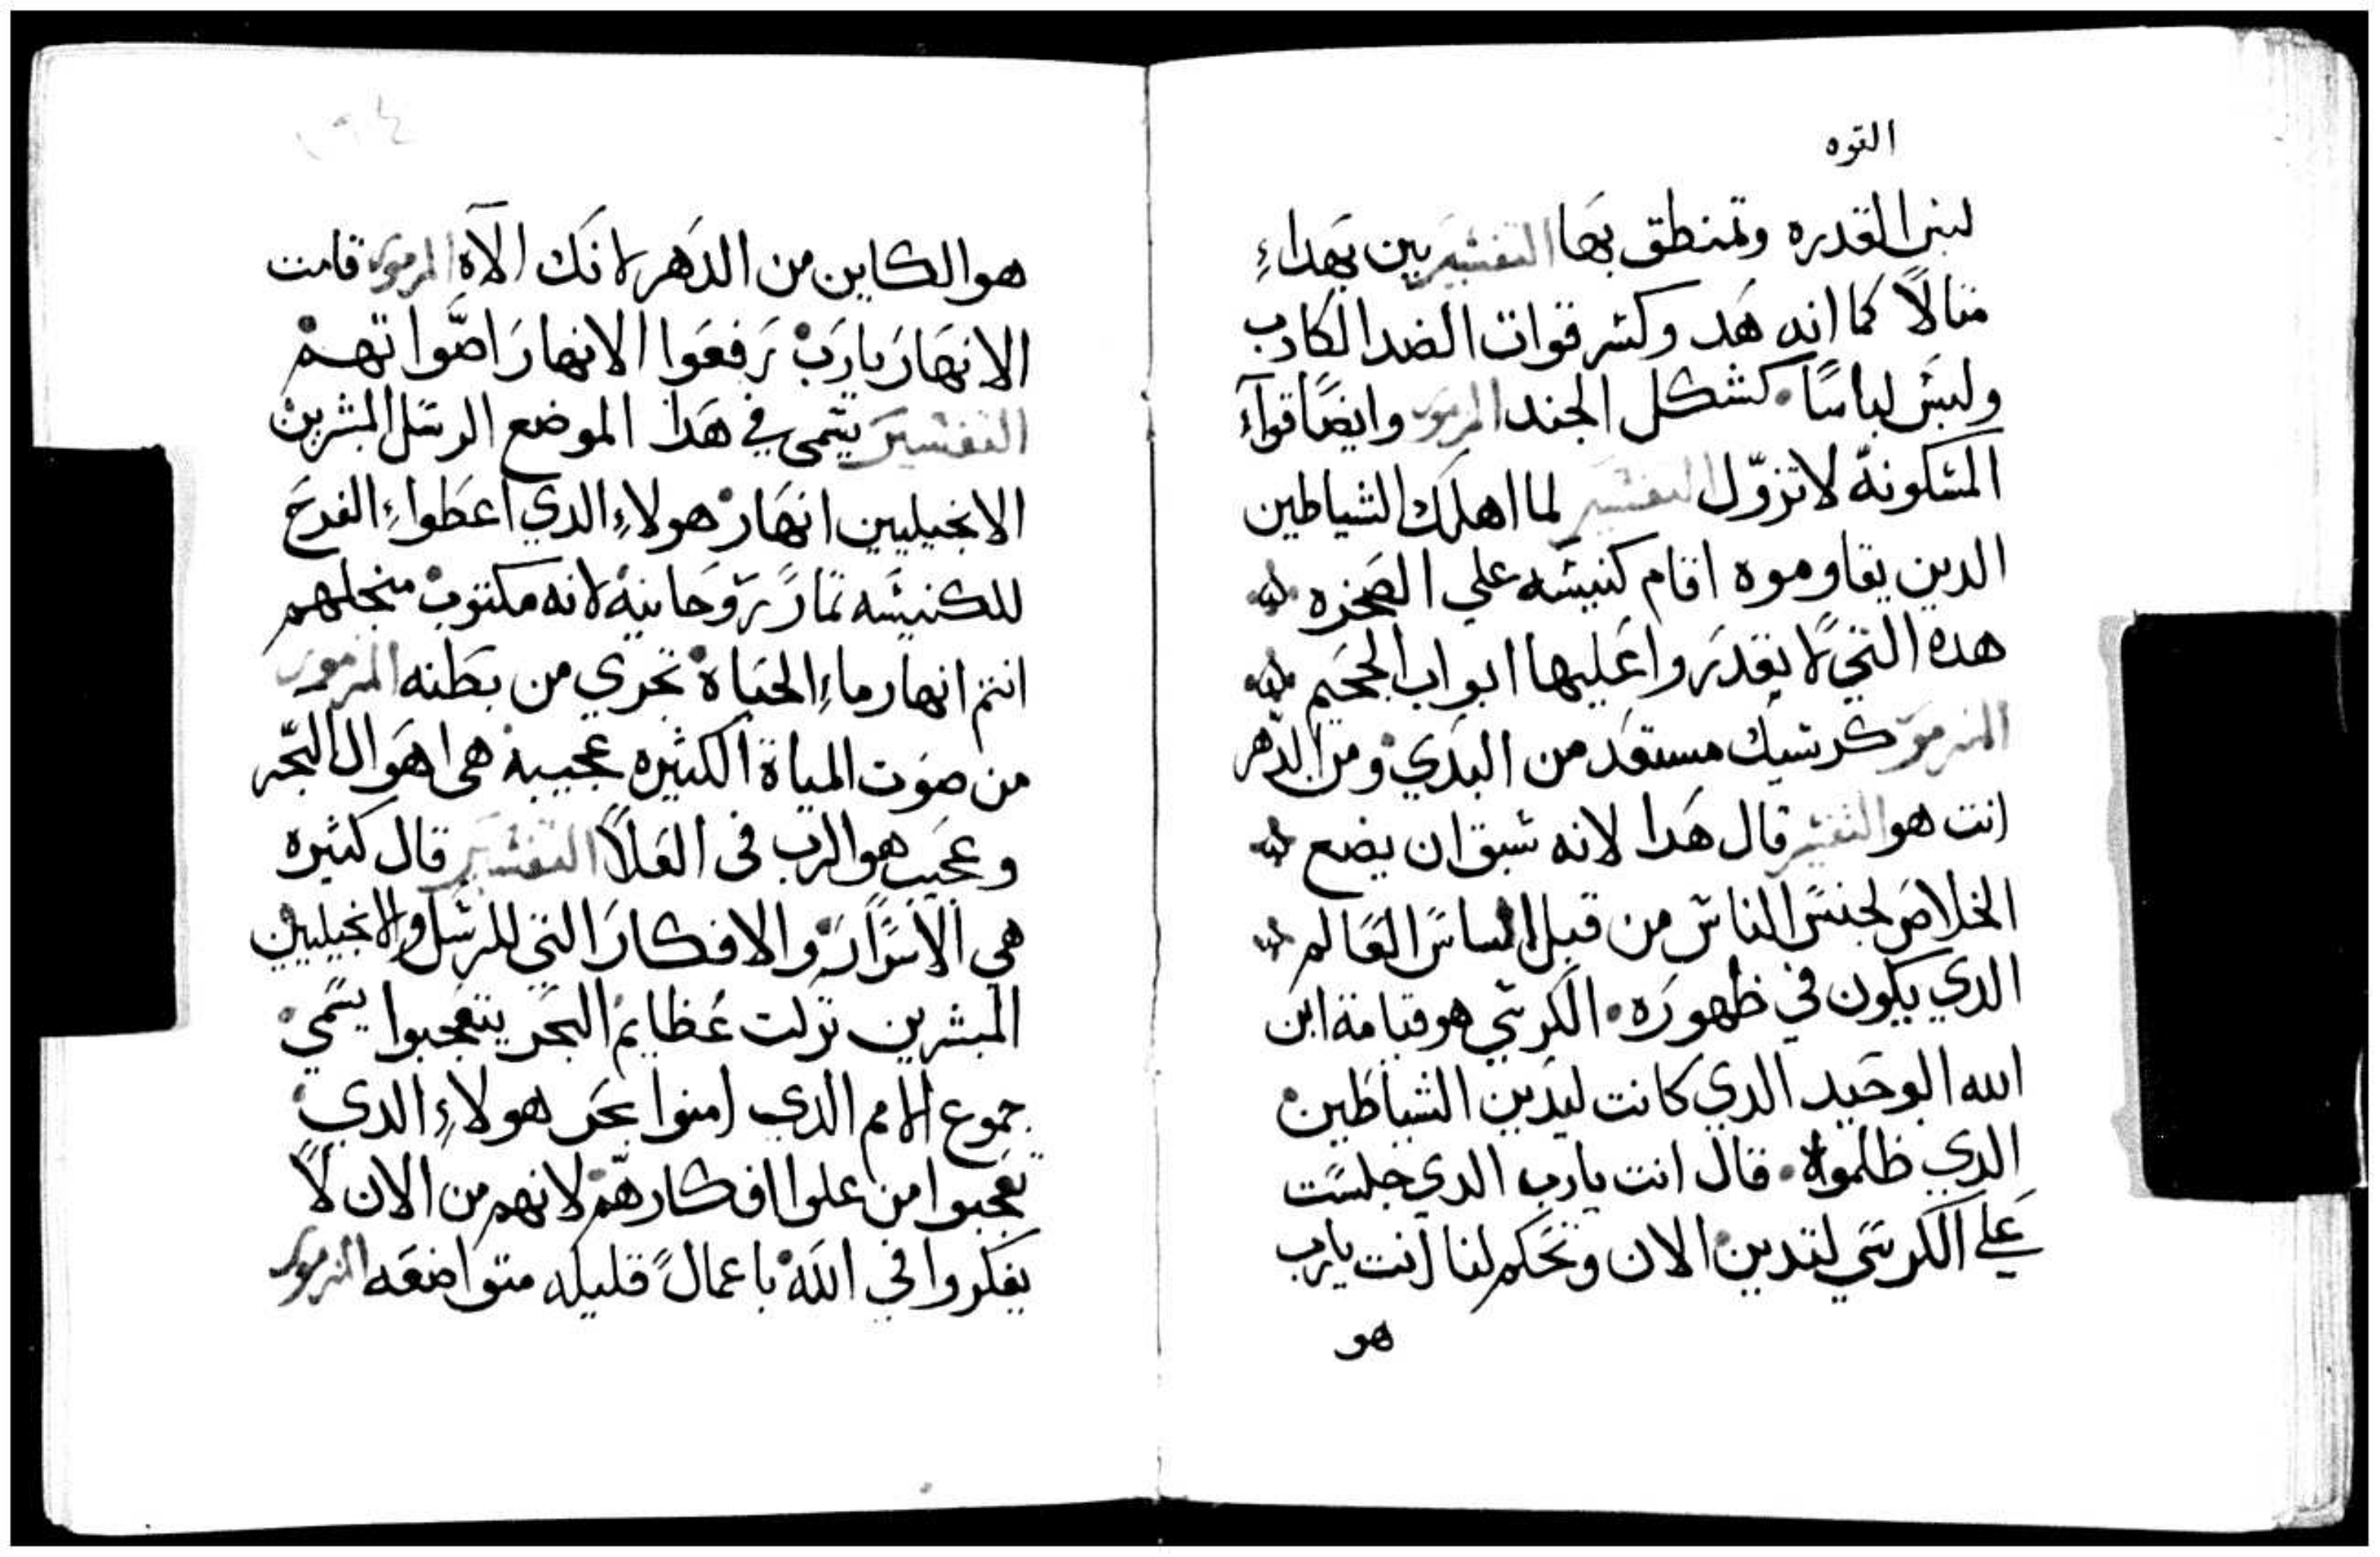 القوه
لبس القدره وتمنطق بها التفسير بين بهداء
مثالاً كما انه هد وكسر قوات الضد الكادب
ولبس لباسًا • كشكل الجند المزمور وايضًا قواء
المسكونة لا تزول التفسير لما اهلك الشياطين
الدين يقاوموه اقام كنيسه علي الصخره
هده التي لا يقدروا عليها ابواب الجحيم
المزمور كرسيك مستعد من البدي ومن الدهر
انت هو التفسير قال هدا لانه سبق ان يضع
الخلاص لجنس الناس من قبل اساس العالم
الدي يكون في ظهوره • الكرسي هو قيامة ابن
الله الوحيد الدي كانت ليدين الشياطين
الدي ظلموا • قال انت يارب الدي جلست
علي الكرسي لتدين الان وتحكم لنا انت يارب
هو
هو الكاين من الدهر لانك الاه المزمور قامت
الانهار يارب رفعوا الانهار اصواتهم
التفسير يسمي في هدا الموضع الرسل المبشرين
الانجيليين انهار هولاء الدي اعطواء الفرح
للكنيسه ثمار روحانية لانه مكتوب منجلهم
انتم انهار ماء الحياة تجري من بطنه المزمور
من صوت المياة الكثيره عجيبة هي اهوال البحر
وعجيب هو الرب في العلا التفسير قال كثيره
هي الاسرار والافكار التي للرسل والانجيليين
المبشرين تركت عظايم البحر يتعجبوا يسمي
جموع الامم الدي امنوا بحر هولاء الدي
تعجبوا من علوا افكارهم لانهم من الان لا
يفكروا في الله باعمال قليله متواضعه المزمور